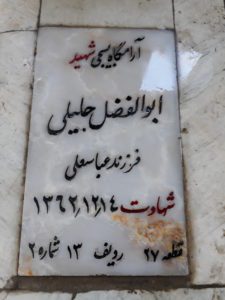 آرامگاه بسیجی شهید
ابوالفضل جلیلی
فرزند عباسعلی
شهادت ۱۳۶۲/۱۲/۱۴
قطعه ۲۷ ردیف ۱۳ شماره ۲